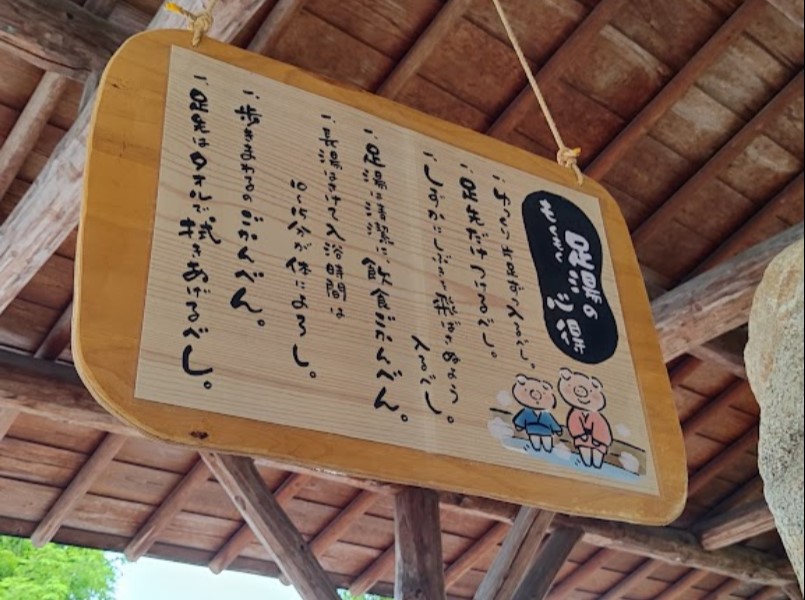 足湯の
もくもく
一、ゆっくり片足ずつ入るべし。
一、足先だけつけるべし。
一、しずかにしぶきを飛ばさぬよう
入るべし。
一、足湯は清潔に、飲食ごかんべん。
一、長湯はさけて入浴時間は
10〜15分が体によろし。
一、歩きまわるのごかんべん。
一、足先はタオルで拭きあげるべし。